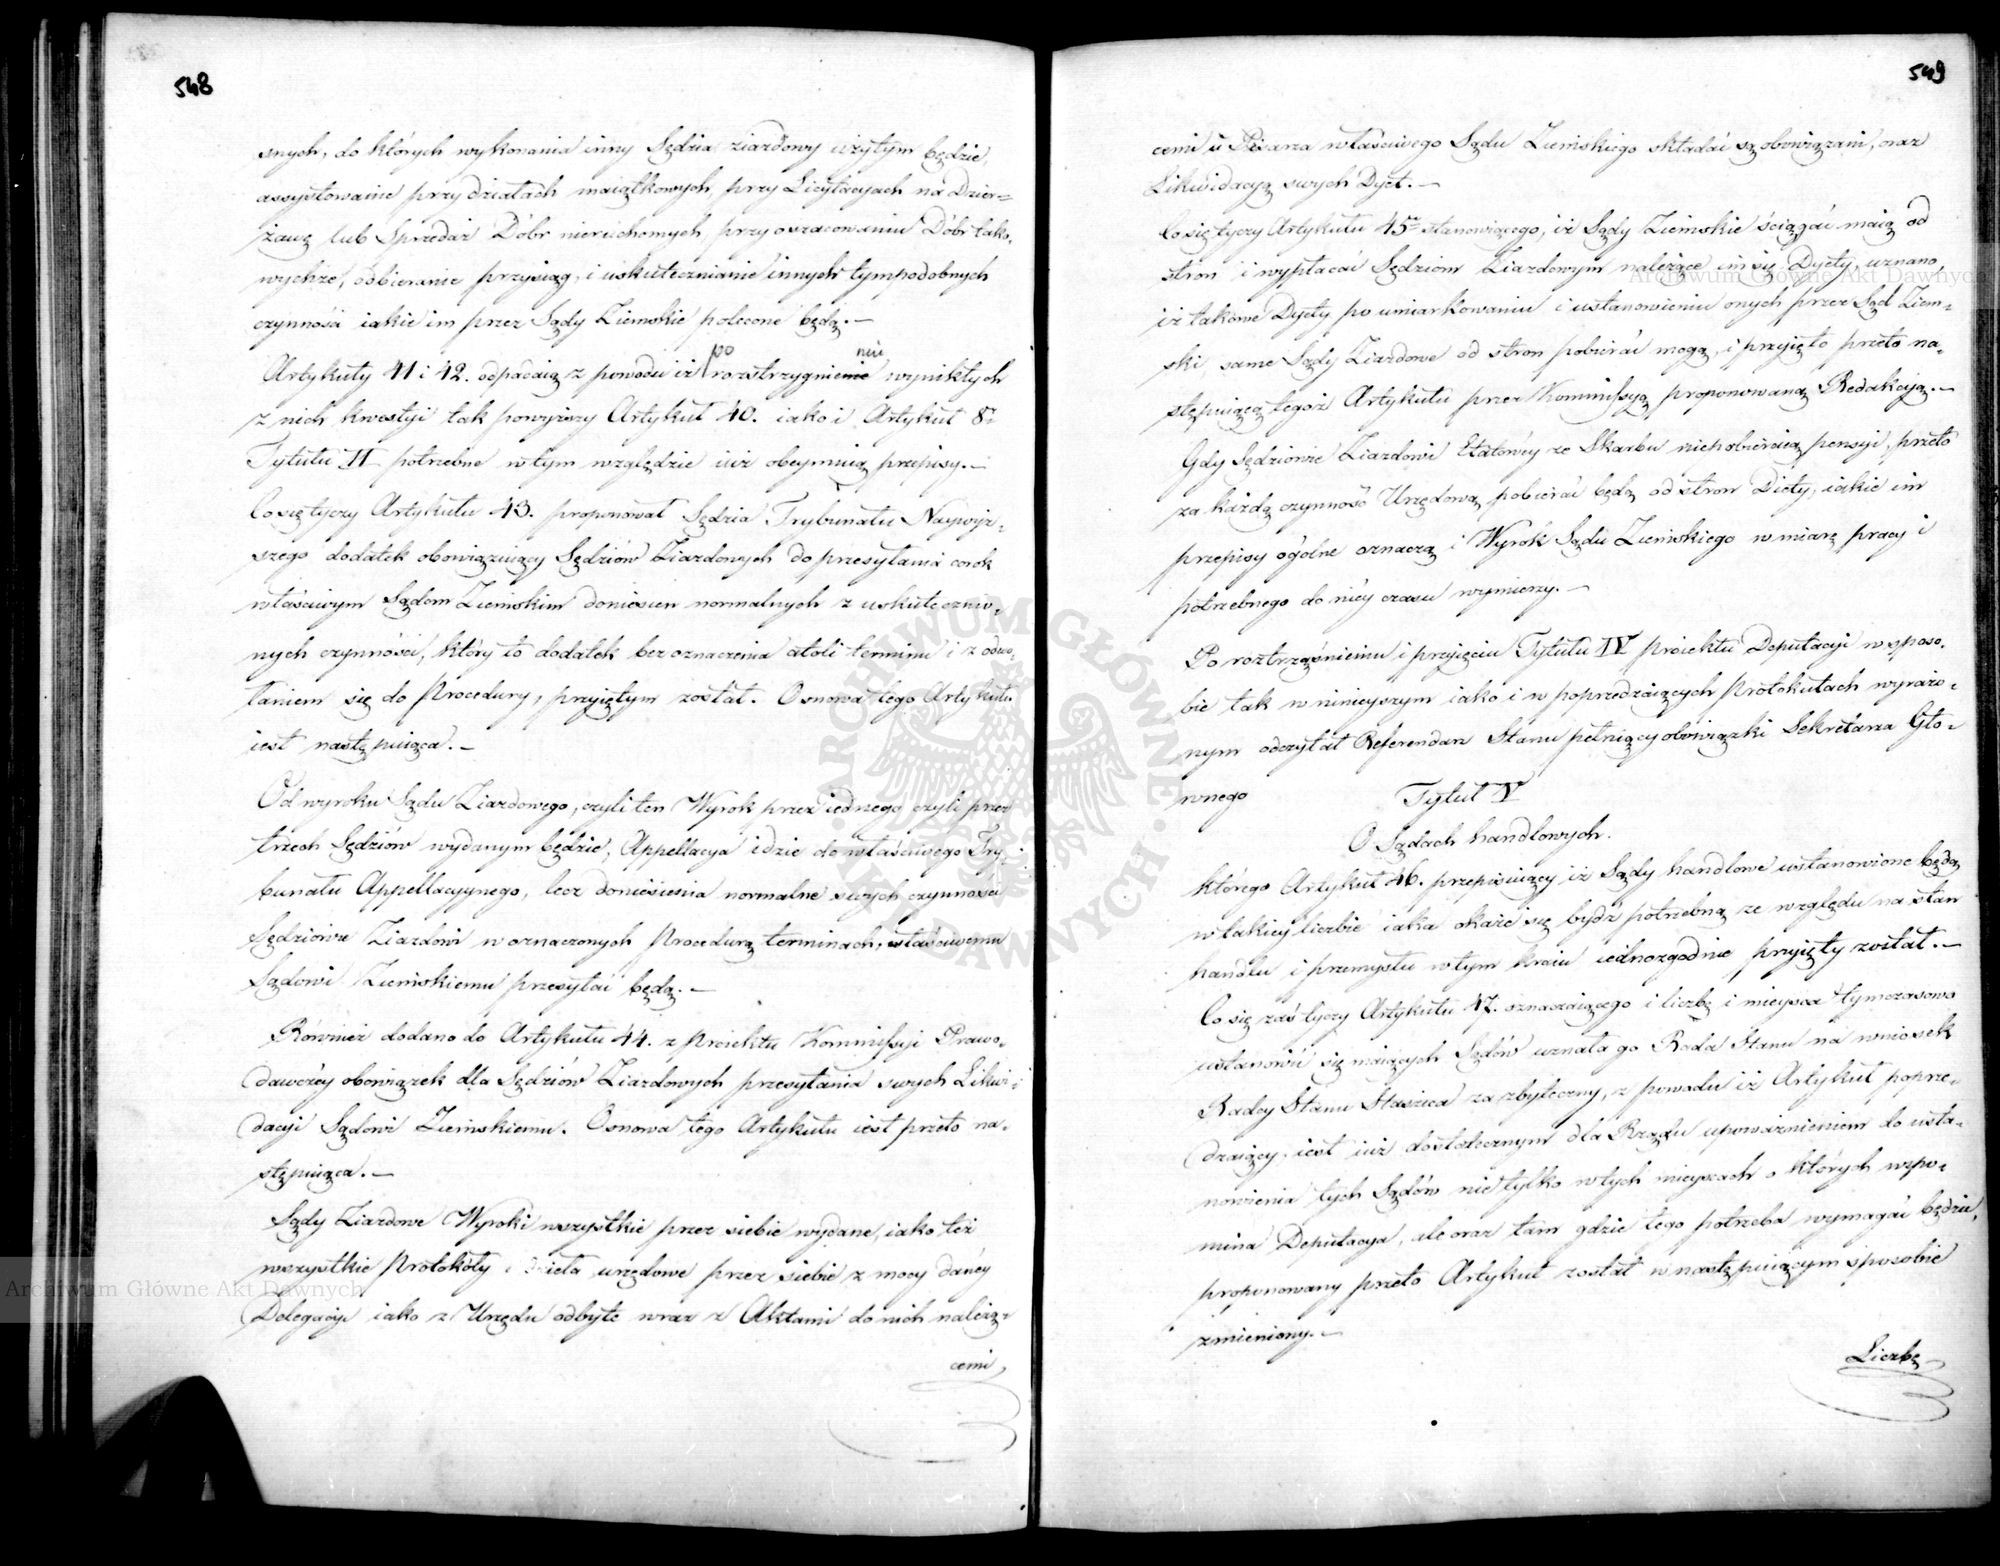 548
snych, do których wykonania inny Sędzia ziazdowy użytym będzie,
assystowanie przy działach maiątkowych, przy Licytacyach na Dzier-
żawę lub Sprzedaż Dóbr nieruchomych, przy oszacowaniu Dóbr tako-
wychże, odbieranie przysiąg, i uskutecznianie innych tympodobnych
czynności iakie im przez Sądy Ziemskie polecone będą. —
Artykuły 41 i 42. odpadaią z powodu iż po rozstrzygnieniu wynikłych
z nich kwestyi tak powyższy Artykuł 40. iako i Artykuł 8.
Tytułu II potrzebne w tym względzie iuż obeymuią przepisy. —
Co się tyczy Artykułu 43. proponował Sędzia Trybunału Naywyż-
szego dodatek obowiązuiący Sędziów Ziazdowych do przesyłania corok
właściwym Sądom Ziemskim doniesien normalnych z uskutecznio-
nych czynności, który to dodatek bez oznaczenia atoli terminu i z odwo-
łaniem się do Procedury, przyiętym został. Osnowa tego Artykułu
iest następuiąca. —
Od wyroku Sądu Ziazdowego, czyli ten Wyrok przez iednego czyli przez
trzech Sędziów wydanym będzie, Appellacya idzie do właściwego Try
bunału Appellacyynego, lecz doniesienia normalne swych czynności
Sędziowie Ziazdowi w oznaczonych Procedurą terminach, właściwemu
Sądowi Ziemskiemu przesyłać będą. —
Również dodano do Artykułu 44. z Proiektu Kommissyi Prawo-
dawczéy obowiązek dla Sędziów Ziazdowych przesyłania swych Likwi-
dacyi Sądowi Ziemskiemu. Osnowa tego Artykułu iest przeto na-
stępuiąca. —
Sądy Ziazdowe Wyroki wszystkie przez siebie wydane, iako też
wszystkie Protokóły i Dzieła urzędowe przez siebie z mocy danéy
Delegacyi iako z Urzędu odbyte wraz z Aktami do nich należą-
cemi
549
cemi u Pisarza właściwego Sądu Ziemskiego składać są obowiązani, oraz
Likwidacyą swych Dyet. —
Co się tyczy Artykułu 45 stanowiącego, iż Sądy Ziemskie ściągać maią od
stron i wypłacać Sędziom Ziazdowym należące im się Dyety, uznano,
iż takowe Dyety po umiarkowaniu i ustanowieniu onych przez Sąd Ziem-
ski same Sądy Ziazdowe od stron pobierać mogą, i przyięto przeto na-
stępuiącą tegoż Artykułu przez Kommissyą proponowaną Redakcyą. —
Gdy Sędziowie Ziazdowi Etatowéy ze Skarbu nieodbieraią pensyi, przeto
za każdą czynność Urzędową pobierać będą od stron Diety, iakie im
przepisy ogólne oznaczą i Wyrok Sądu Ziemskiego w miarę pracy i
potrzebnego do niéy czasu wymierzy. —
Po roztrząśnieniu i przyięciu Tytułu IV proiektu Deputacyi w sposo-
bie tak w ninieyszym iako i w poprzedzaiących Protokułach wyrażo-
nym odczytał Referendarz Stanu pełniący obowiązki Sekretarza Głó-
wnego Tytuł V
O Sądach handlowych.
którego Artykuł 46. przepisuiący iż Sądy handlowe ustanowione będą
w takiey liczbie iaka okaże się bydź potrzebną ze względu na stan
handlu i przemysłu w tym kraiu iednozgodnie przyięty został. —
Co się zaś tyczy Artykułu 47. oznaczaiącego i liczbę i mieysca tymczasowo
ustanowić się maiących Sądów uznała go Rada Stanu na wniosek
Radcy Stanu Staszica za zbyteczny, z powodu iż Artykuł poprze-
dzaiący, iest iuż dostatecznym dla Rządu upoważnieniem do usta-
nowienia tych Sądów nie tylko w tych mieyscach o których wspo-
mina Deputacya, ale oraz tam gdzie tego potrzeba wymagać będzie,
proponowany przeto Artykuł został w następuiącym sposobie
zmieniony. —
Liczbę
Archiwum Główne Akt Dawnych
Archiwum Główne Akt Dawnych
ARCHIWUM GŁÓWNE AKT DAWNYCH